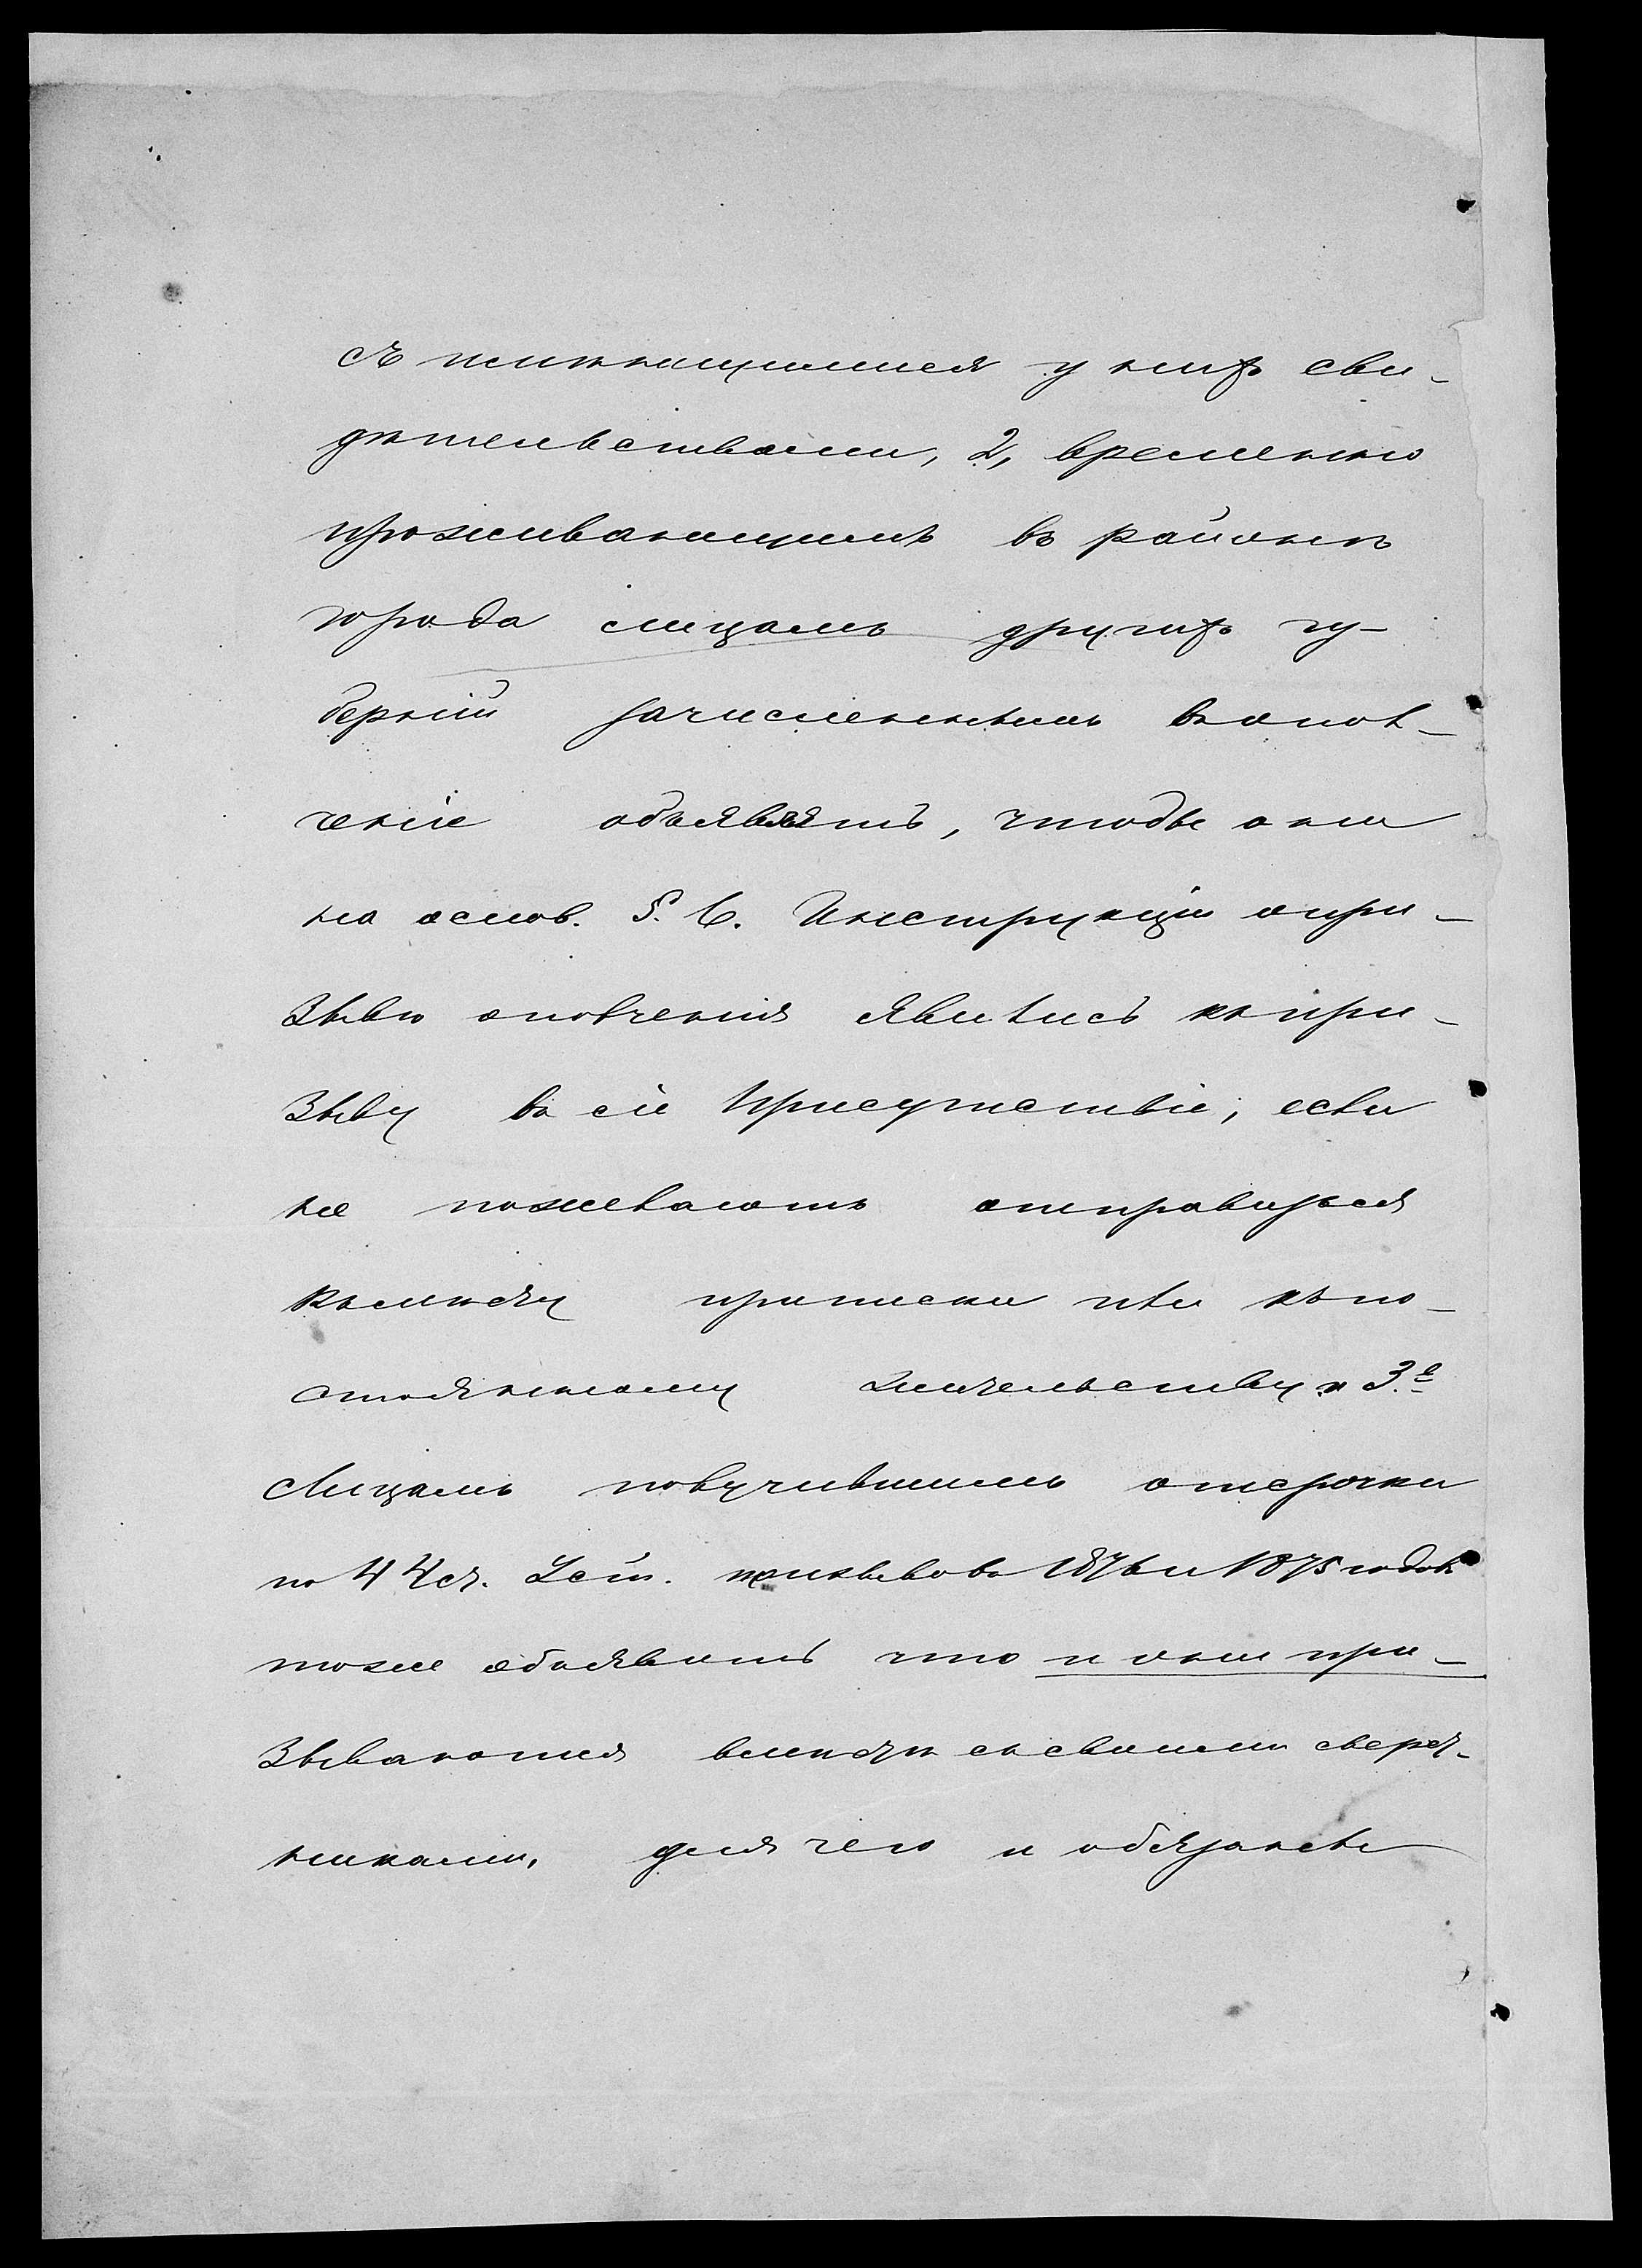 съ имѣющимися у нихъ сви-
дѣтельствами, 2, временно
проживающимъ въ районѣ
города лицамъ другихъ гу-
берній зачисленнымъ въ опол-
ченіе объявлять, чтобы они
на основ. §. 6. Инструкціи о при-
зывѣ ополченія явились къ при-
зыву въ сіе Присутствіе, если
не пожелаютъ отправиться
къ мѣсту приписки или къ по-
стоянному жительству и 3.е
Лицамъ получившимъ отсрочки
по 44 ст. Уст. призывовъ 1876 и 1875 годовъ
тоже объявить что и они при-
зываются вмѣстѣ съ своими сверст-
никами, для чего и обязаны